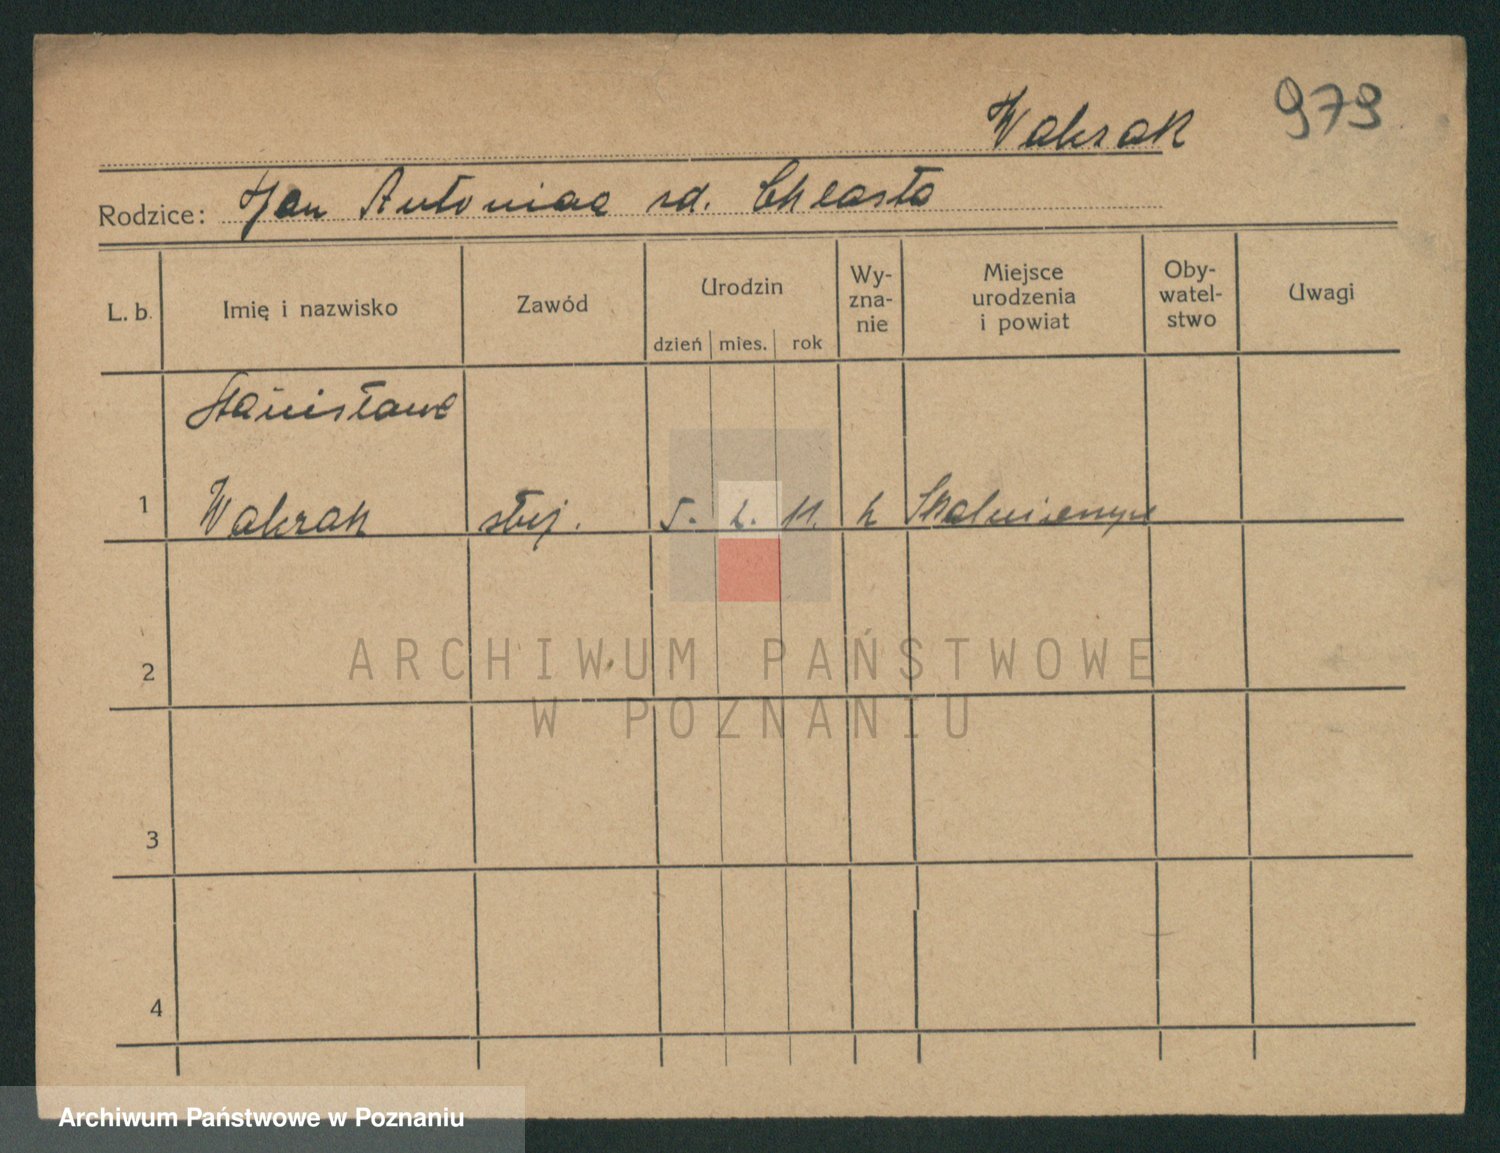 Wakrak 979
Rodzice: Jan Antonina rd. Chlasta
L. b. Imię i nazwisko Zawód Urodzin dzień mies. rok Wy-zna-nie Miejsce urodzenia i powiat Oby-watel-stwo Uwagi
Stanisława
1 Wakrak służ. 5. 2. 11. k
2
ARCHIWUM PAŃSTWOWE
W POZNANIU
3
4
Archiwum Państwowe w Poznaniu